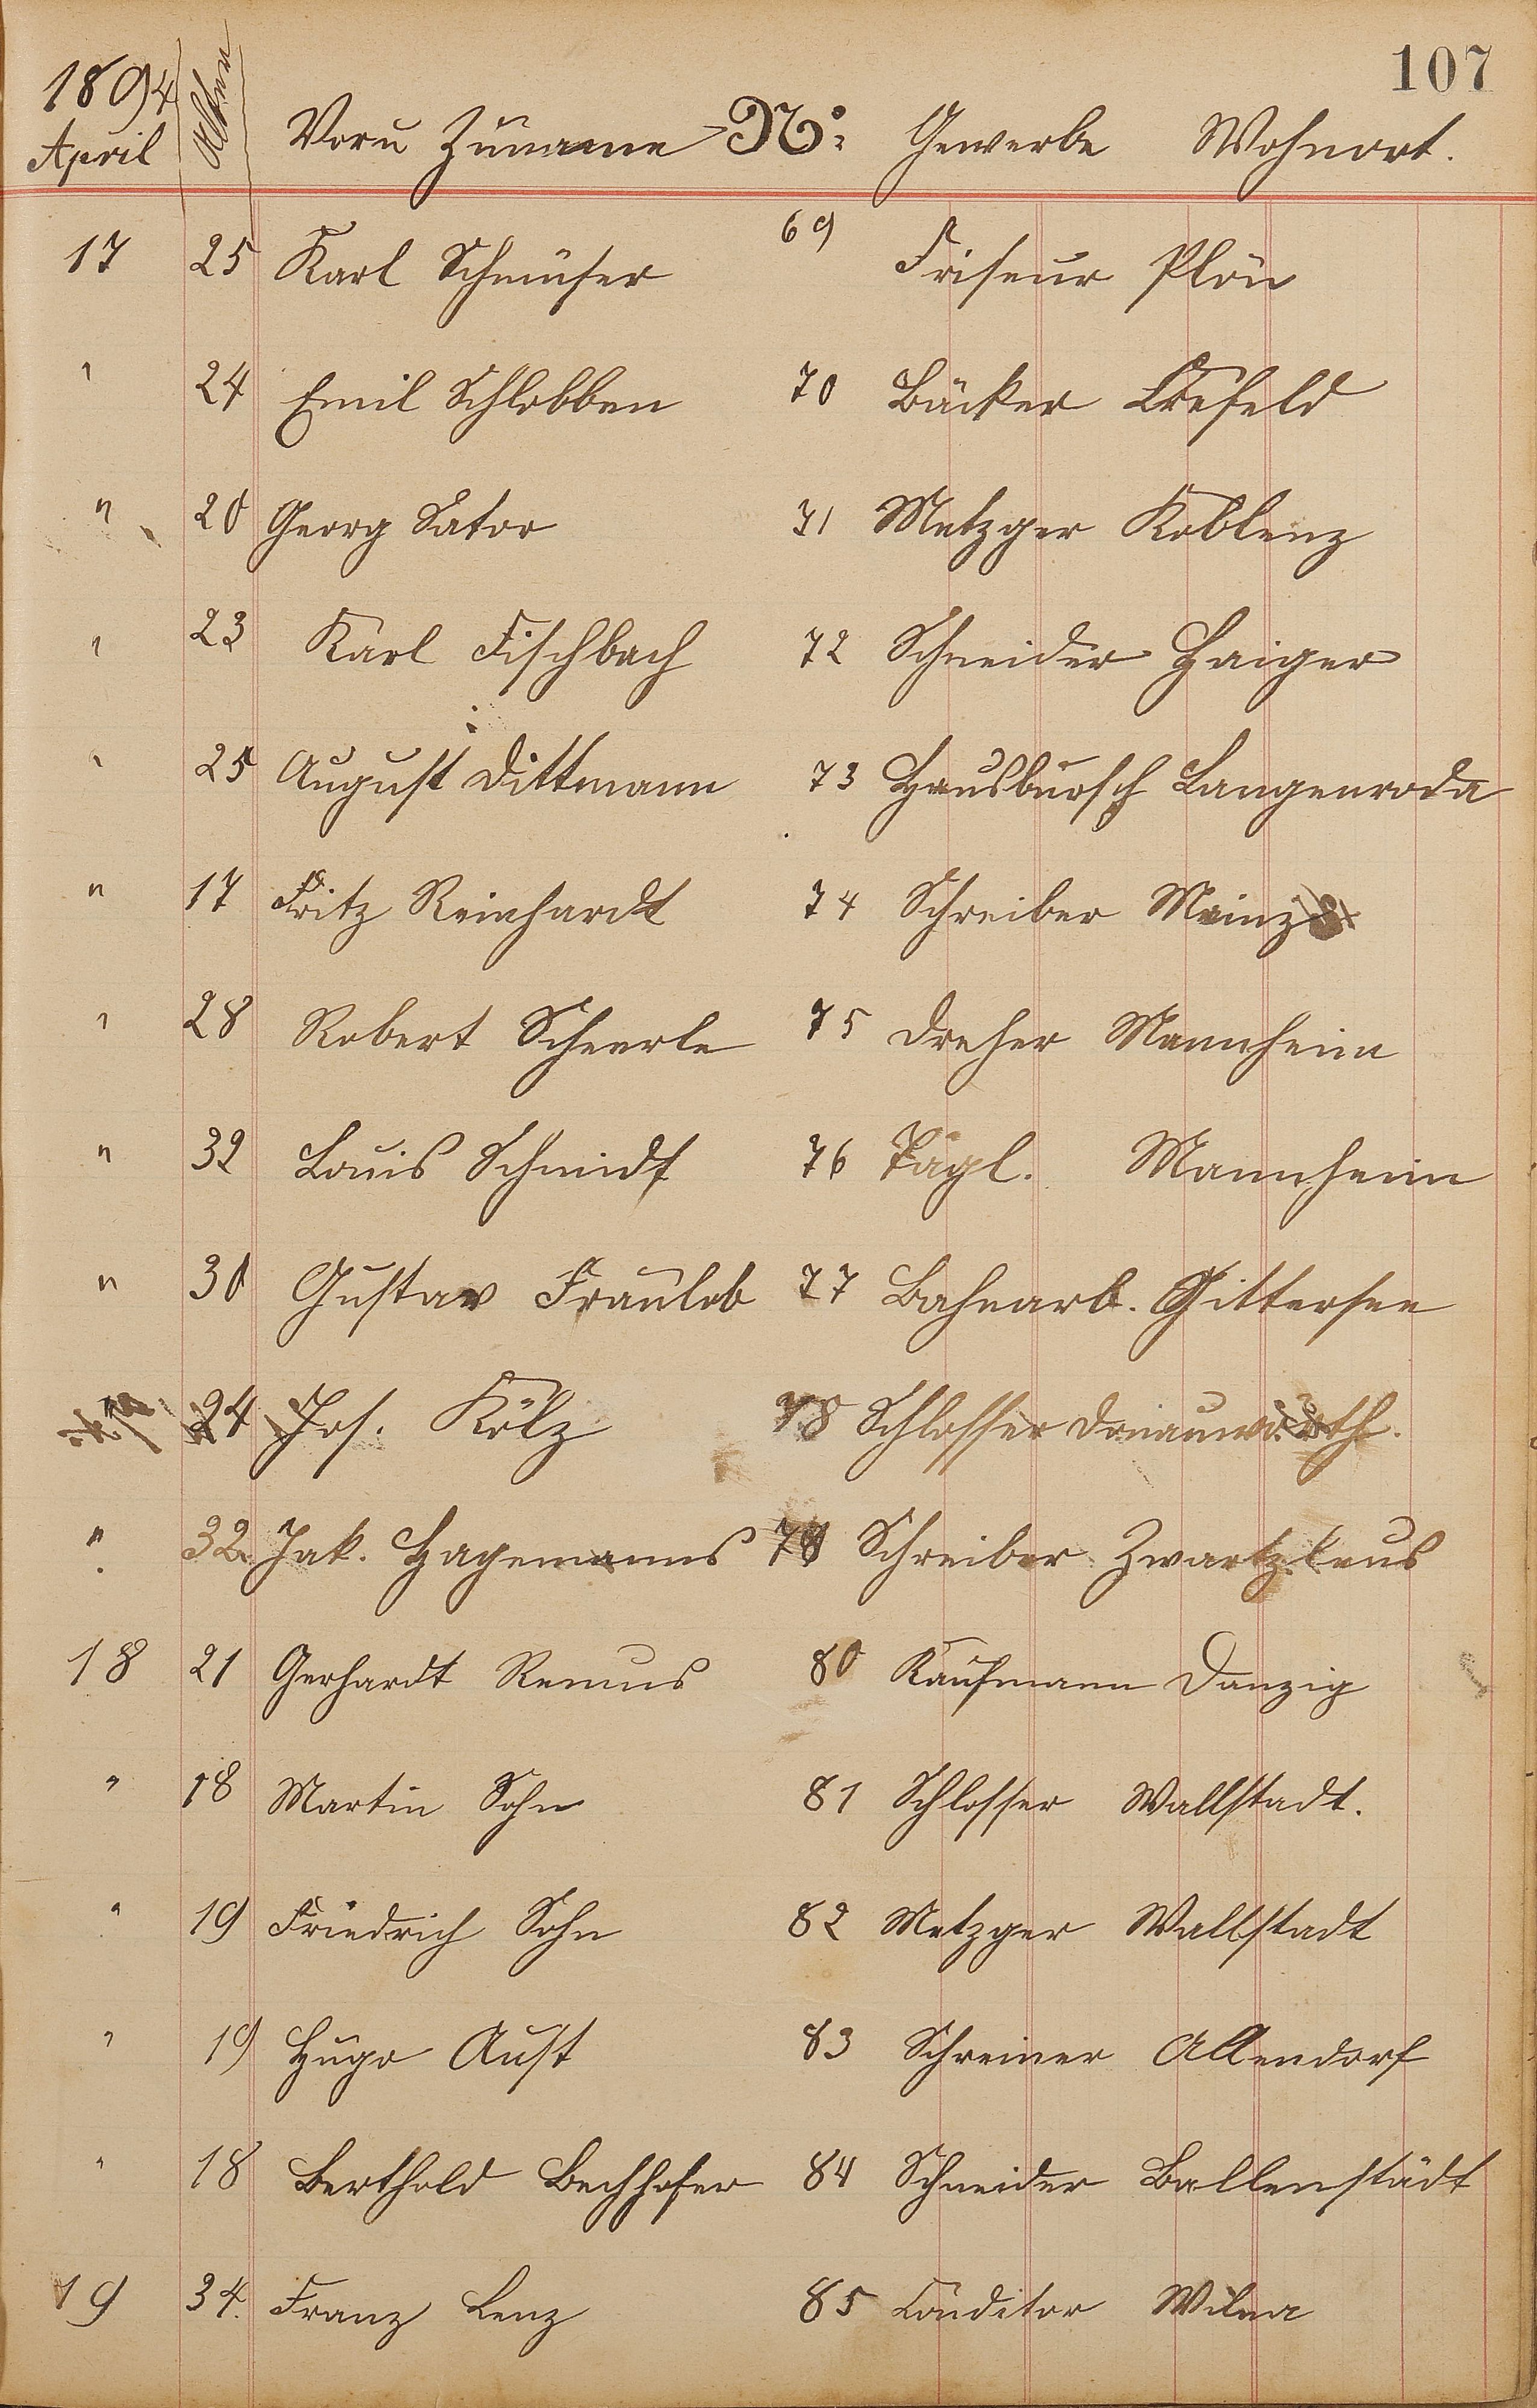 107
1894 Alter
April Vor u Zuname No: Gewerbe Wohnort.
17 25 Karl Schmüser 69 Friseur Plön
" 24 Emil Schlobben 70 Bäcker Krefeld
" 20 Georg Sator 71 Metzger Koblenz
" 23 Karl Fischbach 72 Schneider Haiger
" 25 August Dittmann 73 Hausbursch Langenroda
" 17 Fritz Reinhardt 74 Schreiber Mainz
" 28 Robert Scheerle 75 Dreher Mannheim
" 32 Louis Schmidt 76 Tagl. Mannheim
" 30 Gustav Fraulob 77 Bahnarb. Gittersee
" 24 Jos. Kölz 78 Schlosser Donauwörth.
" 32. Jak. Hagemanns 79 Schreiber Zwartzluus
18 21 Gerhardt Remus 80 Kaufmann Danzig
" 18 Martin Sohn 81 Schlosser Wallstadt.
" 19 Friedrich Sohn 82 Metzger Wallstadt
" 19 Hugo Aust 83 Schreiner Allendorf
" 18 Berthold Bechhofer 84 Schneider Ballenstädt
19 34. Franz Lenz 85 Conditor Wilna